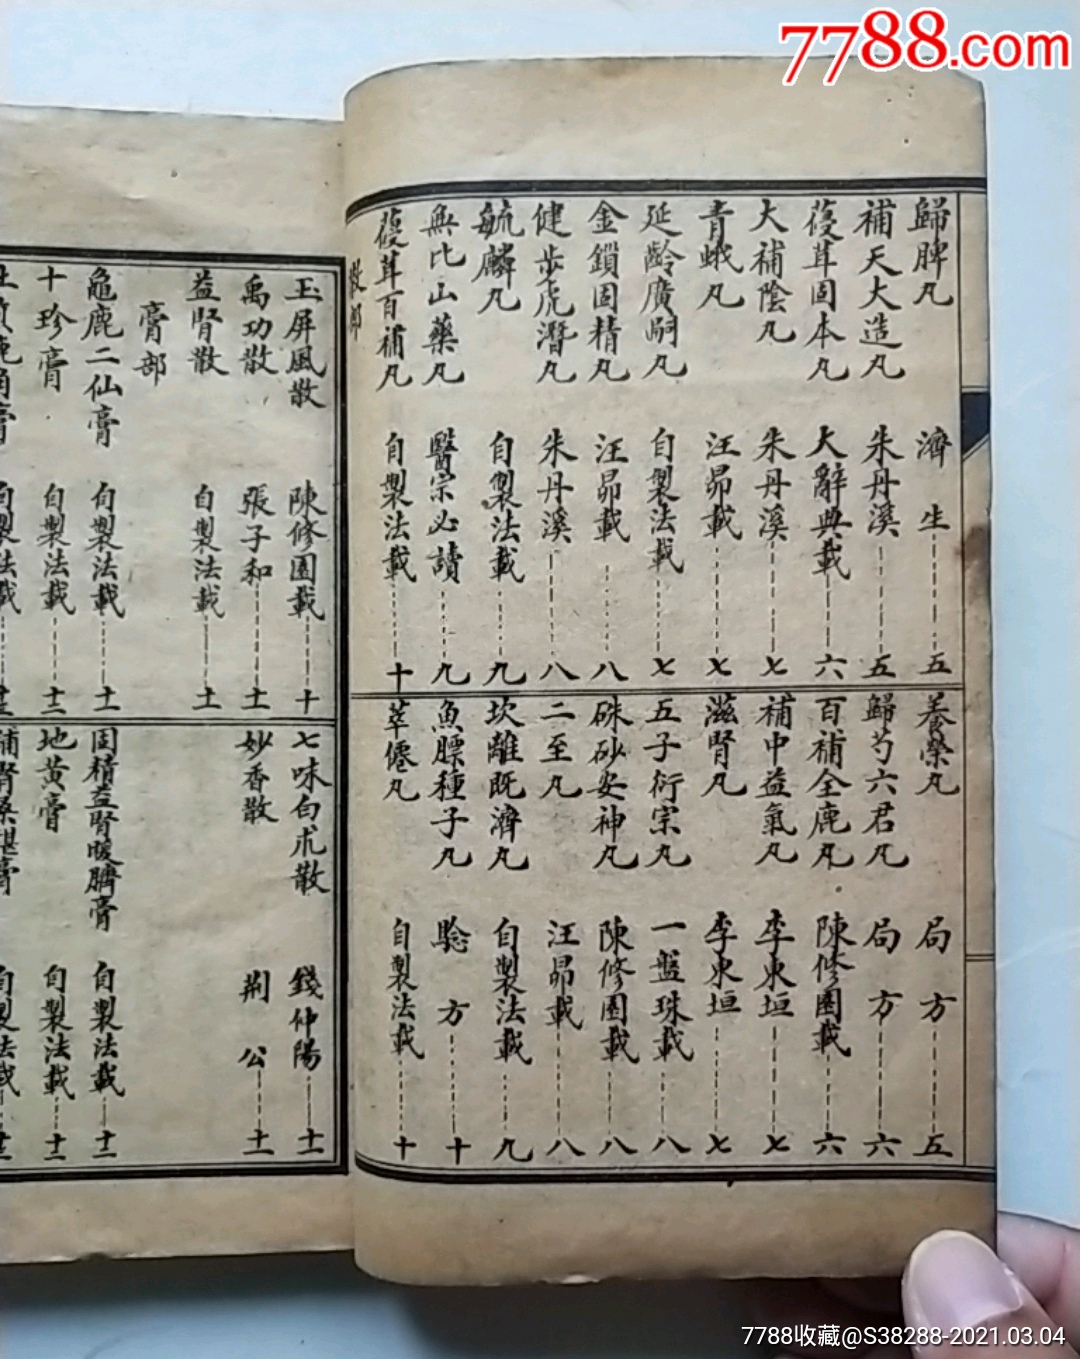 7788.com
歸脾丸 濟生 五
補天大造丸 朱丹溪 五
葠茸固本丸 大辭典載 六
大補陰丸 朱丹溪 七
青蛾丸 汪昂載 七
延齡廣嗣丸 自製法載 七
金鎖固精丸 汪昂載 八
健步虎潛丸 朱丹溪 八
毓麟丸 自製法載 九
無比山藥丸 醫宗必讀 九
葠茸百補丸 自製法載 十
散部
養榮丸 局方 五
歸芍六君丸 局方 六
百補全鹿丸 陳修園載 六
補中益氣丸 李東垣 七
滋腎丸 李東垣 七
五子衍宗丸 一盤珠載 八
硃砂安神丸 陳修園載 八
二至丸 汪昂載 八
坎離既濟丸 自製法載 九
魚膘種子丸 驗方 十
萃僊丸 自製法載 十
玉屏風散 陳修園載 十
禹功散 張子和 十一
益腎散 自製法載 十一
膏部
龜鹿二仙膏 自製法載 十一
十珍膏 自製法載 十二
鹿角膏 自製法載
七味白朮散 錢仲陽 十一
妙香散 荊公 十一
固精益腎暖臍膏 自製法載 十二
地黃膏 自製法載 十二
補腎桑椹膏 自製法載
7788收藏@S38288-2021.03.04